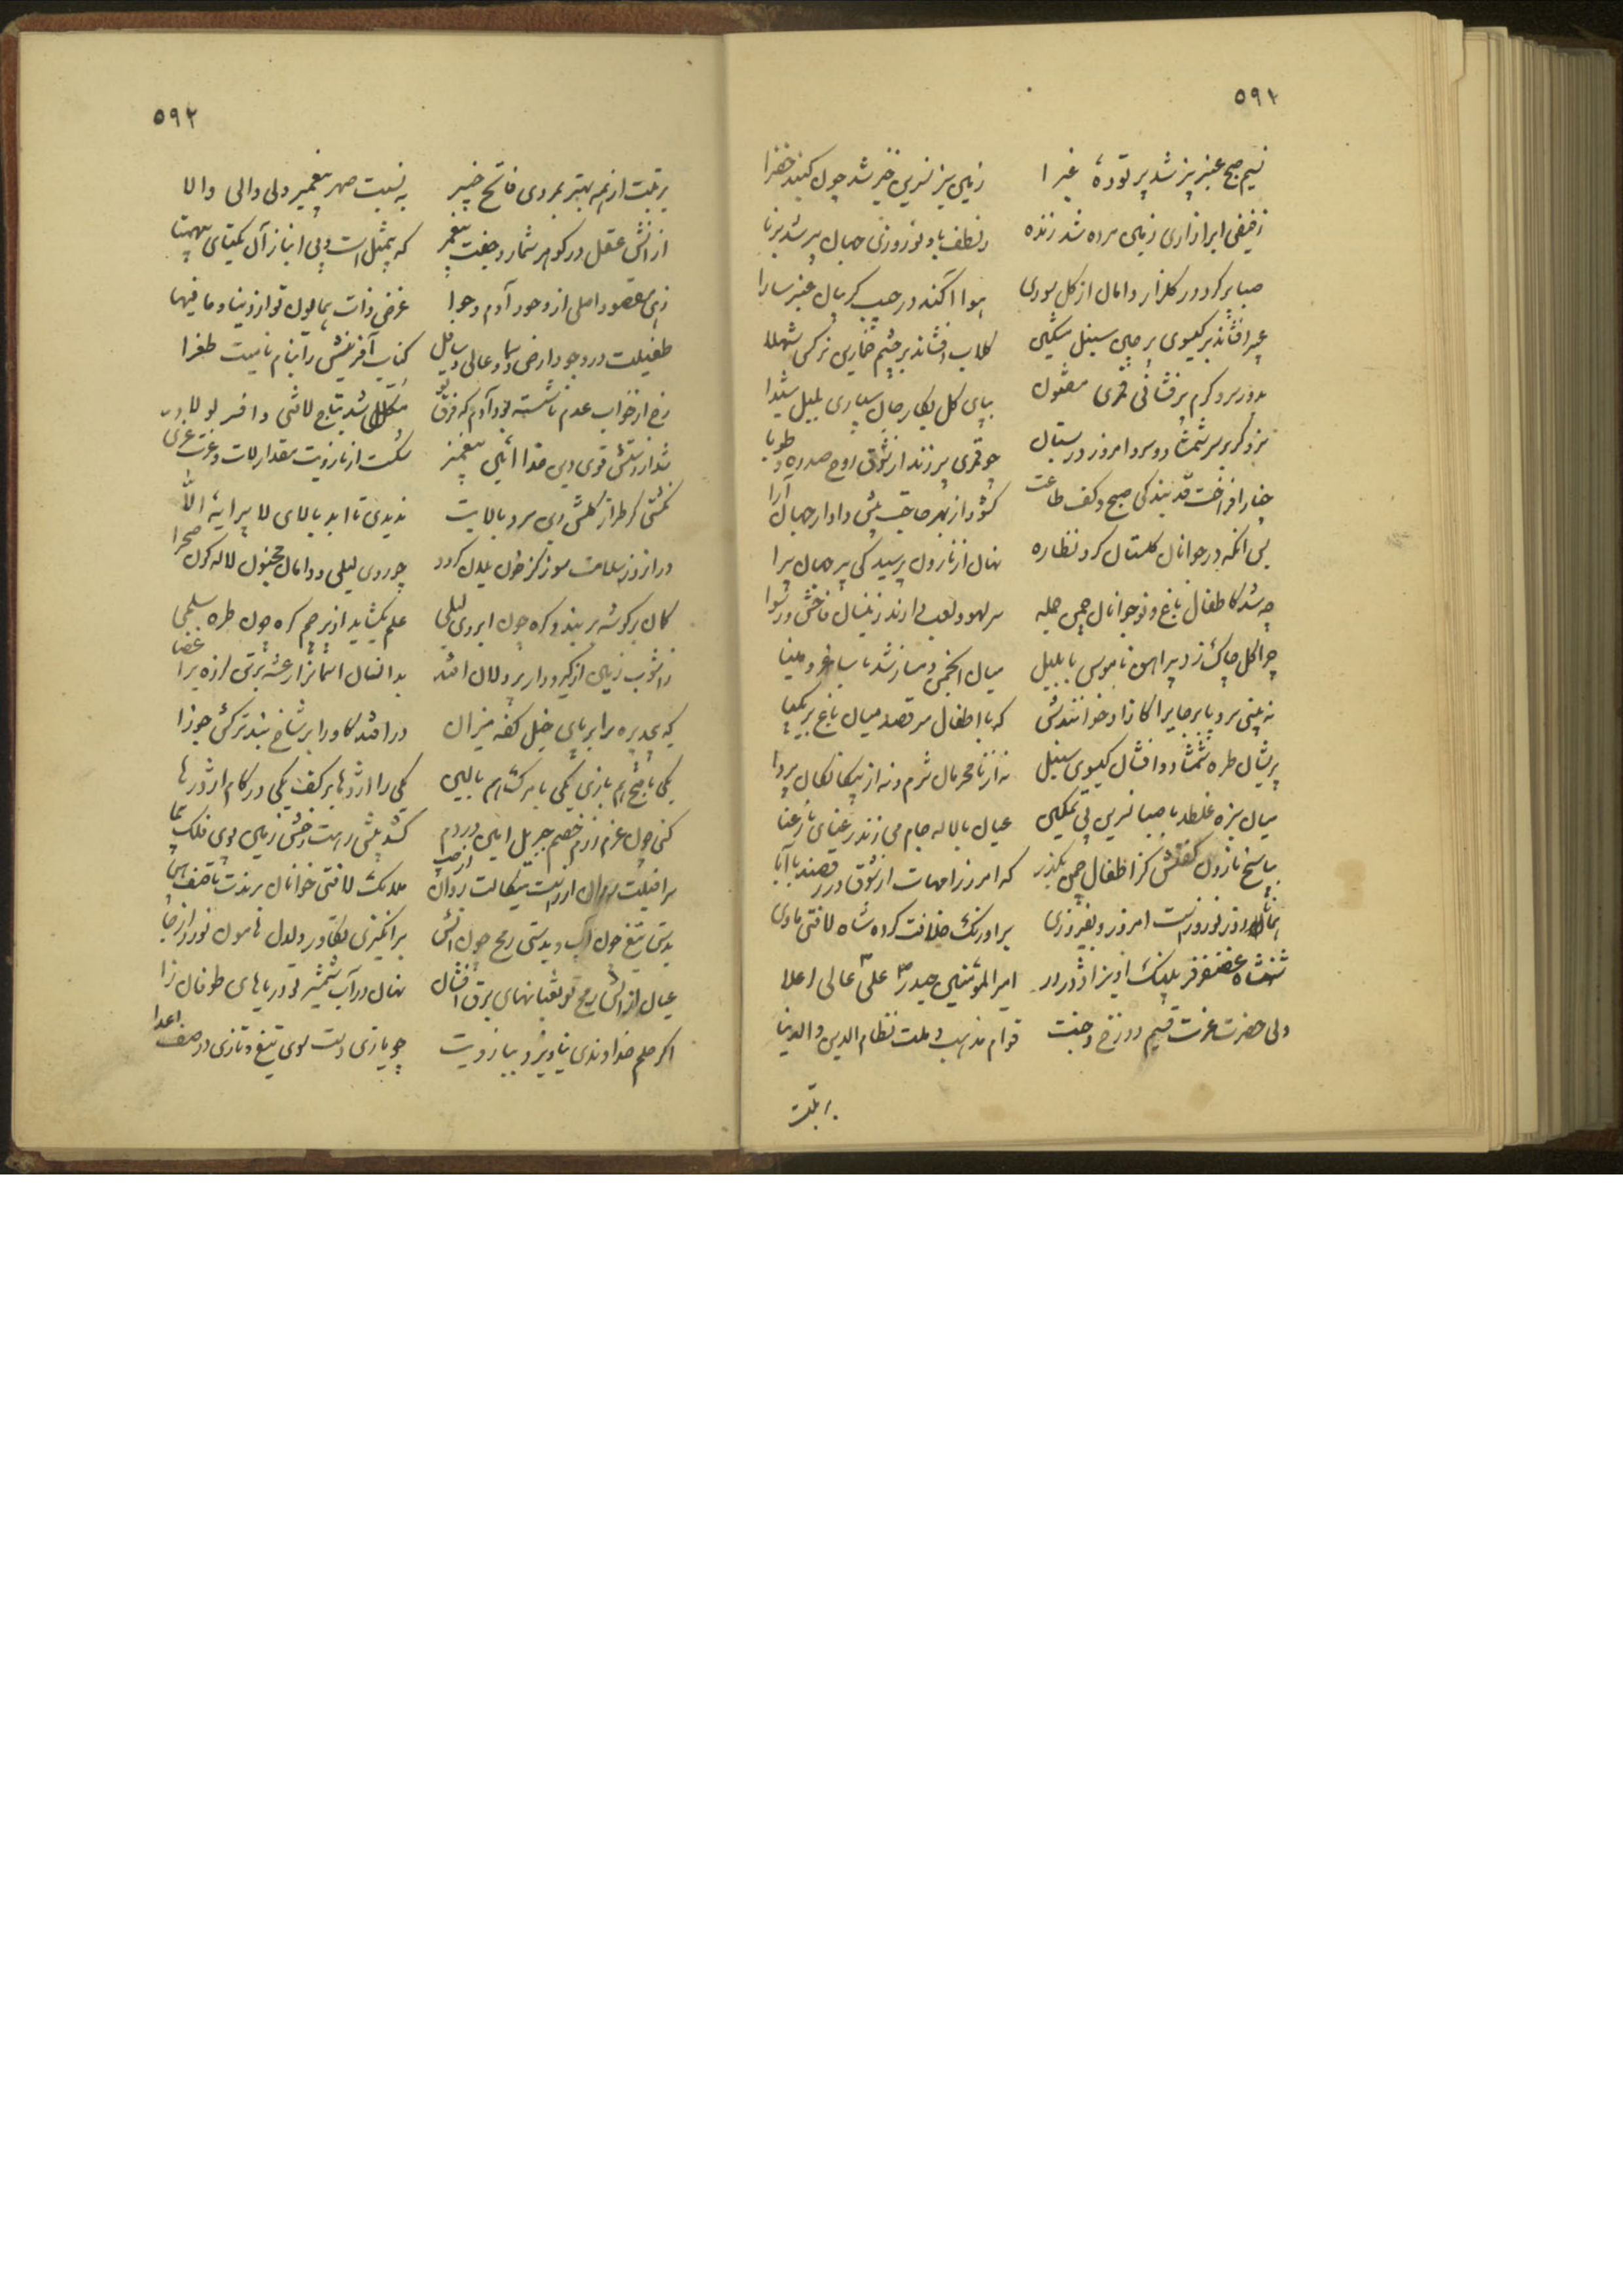 ٥٩١
نسیم صبح عنبر بیز شد بر تودهٔ غبرا زمین سبز نسرین خیز شد چون کنبد خضرا
ز فیض ابر آزاری زمین مرده شد زنده ز لطف باد نوروزی جهان پیر شد برنا
صبا پر کرد در کلزار دامان از کل سوری هوا اکند در جیب کریبان عنبر سارا
عبیر افشاند بر کیسوی پرچین سنبل مشکین کلاب افشاند بر چشم خمارین نرکس شهلا
بدور سرو کرم پرفشانی قمری مفتون بپای کل بکار جان سپاری بلبل شیدا
سزد کر بر سر شمشاد و سرو امروز در بستان چو قمری پر زند از شوق روح سدره و طوبا
چنار افراخت قد بندکی صبح و کف طاعت کشود از بهر حاجت پیش دادار جهان آرا
پس انکه در جوانان کلستان کرد نظاره نهان از نارون پرسید کی پیر جهان پیرا
چه شد کاطفال باغ و نوجوانان چمن جمله سر لهو و لعب دارند زینسان فاحش و رسوا
چرا کل چاک زد پیراهن ناموس با بلبل میان انجمن دمساز شد با ساغر و مینا
نه بینی سرو پا برجای را کازاد خوانندش که با اطفال میرقصد میان باغ بر یکپا
پریشان طره شمشاد و افشان کیسوی سنبل نه از نامحرمان شرم و نه از بیکانکان پروا
میان سبزه غلطد با صبا نسرین بی تمکین عیان با لاله جام می زند رعنای نا رعنا
بپاسخ نارون کفتش کز اطفال چمن بکذر که امروز امهات از شوق در رقصند با آبا
همایون روز نوروزست امروز و بفیروزی بر اورنک خلافت کرده شاه لافتی ماوی
شهنشاه غضنفر فر پلنک اویز اژدر در امیر المؤمنین حیدر علی عالی اعلا
ولی حضرت عزت قسیم دوزخ و جنت قوام مذهب و ملت نظام الدین و الدنیا
٥٩٢
برتبت از همه بهتر بمردی فاتح خیبر به نسبت صهر پیغمبر ولی والی والا
از انش عقل در کوهر شمارد جفت پیغمبر که بیمثل است و بی انباز آن یکتای بیهمتا
زهی مقصود اصلی از وجود آدم و حوا غرض ذات همایون تو از دنیا و مافیها
طفیلت در وجود ارض و سما و عالی و سافل کتاب آفرینش را بنام نامیت طغرا
رخ از خواب عدم ناشسته بود آدم که فرق تو مکلل شد بتاج لافتی و افسر لولا
شد از دستش قوی دین خدا ائین پیغمبر شکست از بازویت مقدار لات و عزت عزی
نکشتی کر طراز کلشن دین سرو بالایت ندیدی تا ابد بالای لا پیرایهٔ الا
در انروز سلامت سوز کز خون یلان کردد چو روی لیلی و دامان مجنون لاله کون صحرا
کمان بر کوشه بر بندد کره چون ابروی لیلی علم بکشاید از پرچم کره چون طره سلمی
ز آشوب زمین از کیر و دار پر دلان افتد بدانسان اسمانرا رعشه برتن لرزه بر اعضا
که پیچد بره برابر پای خیل کفه میزان درافتد کاو را بر شاخ بند ترکش جوزا
یکی با فتح هم بازی یکی با مرک هم بالین یکی را اژدها بر کف یکی در کام اژدرها
کنی چون عزم رزم خصم جبریل امین در دم کشد پیشت رخش زمین پوی فلک پیما
سرافیلت روان از راست میکالت دوان از چپ ملایک لافتی خوانان برندت تا صف هیجا
بدستی تیغ چون آب و بدستی رمح چون آتش بر انکیزی تکاور دلدل هامون نورد از جا
عیان از آتش رمح تو ثعبانهای برق افشان نهان در آب شمشیر تو دریاهای طوفان زا
اکر حلم خداوندی نیاویزد ببازویت چو یازی دست سوی تیغ و تازی در صف اعدا